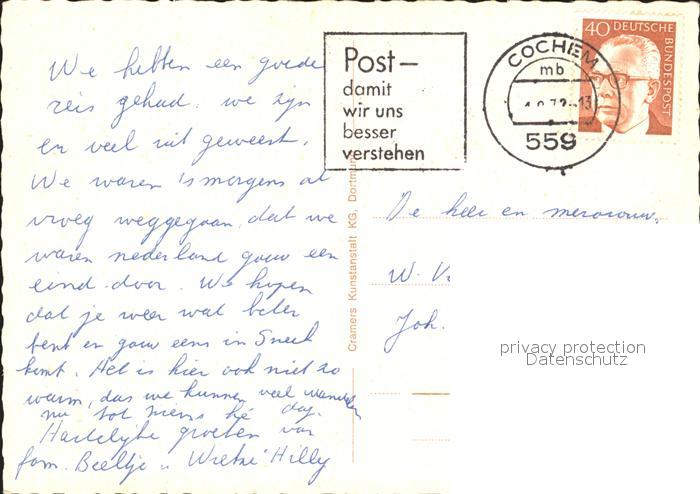 We hebben een goede
reis gehad. we zijn
er veel uit geweest.
We waren 's morgens al
vroeg weggegaan, dat we
waren nederland gouw een
eind door. We hopen
dat je weer wat beter
bent en gouw eens in Sneek
komt. Het is hier ook niet zo
warm, dus we kunnen veel wandelen
nu tot mens hé dag.
Hartelijke groeten van
fam. Beeltje Wietze Hilly
Cramers Kunstanstalt KG, Dortmund
Post—
damit
wir uns
besser
verstehen
COCHEM
mb
559
40 DEUTSCHE
BUNDESPOST
De heer en mevrouw.
W. V
Joh.
privacy protection
Datenschutz